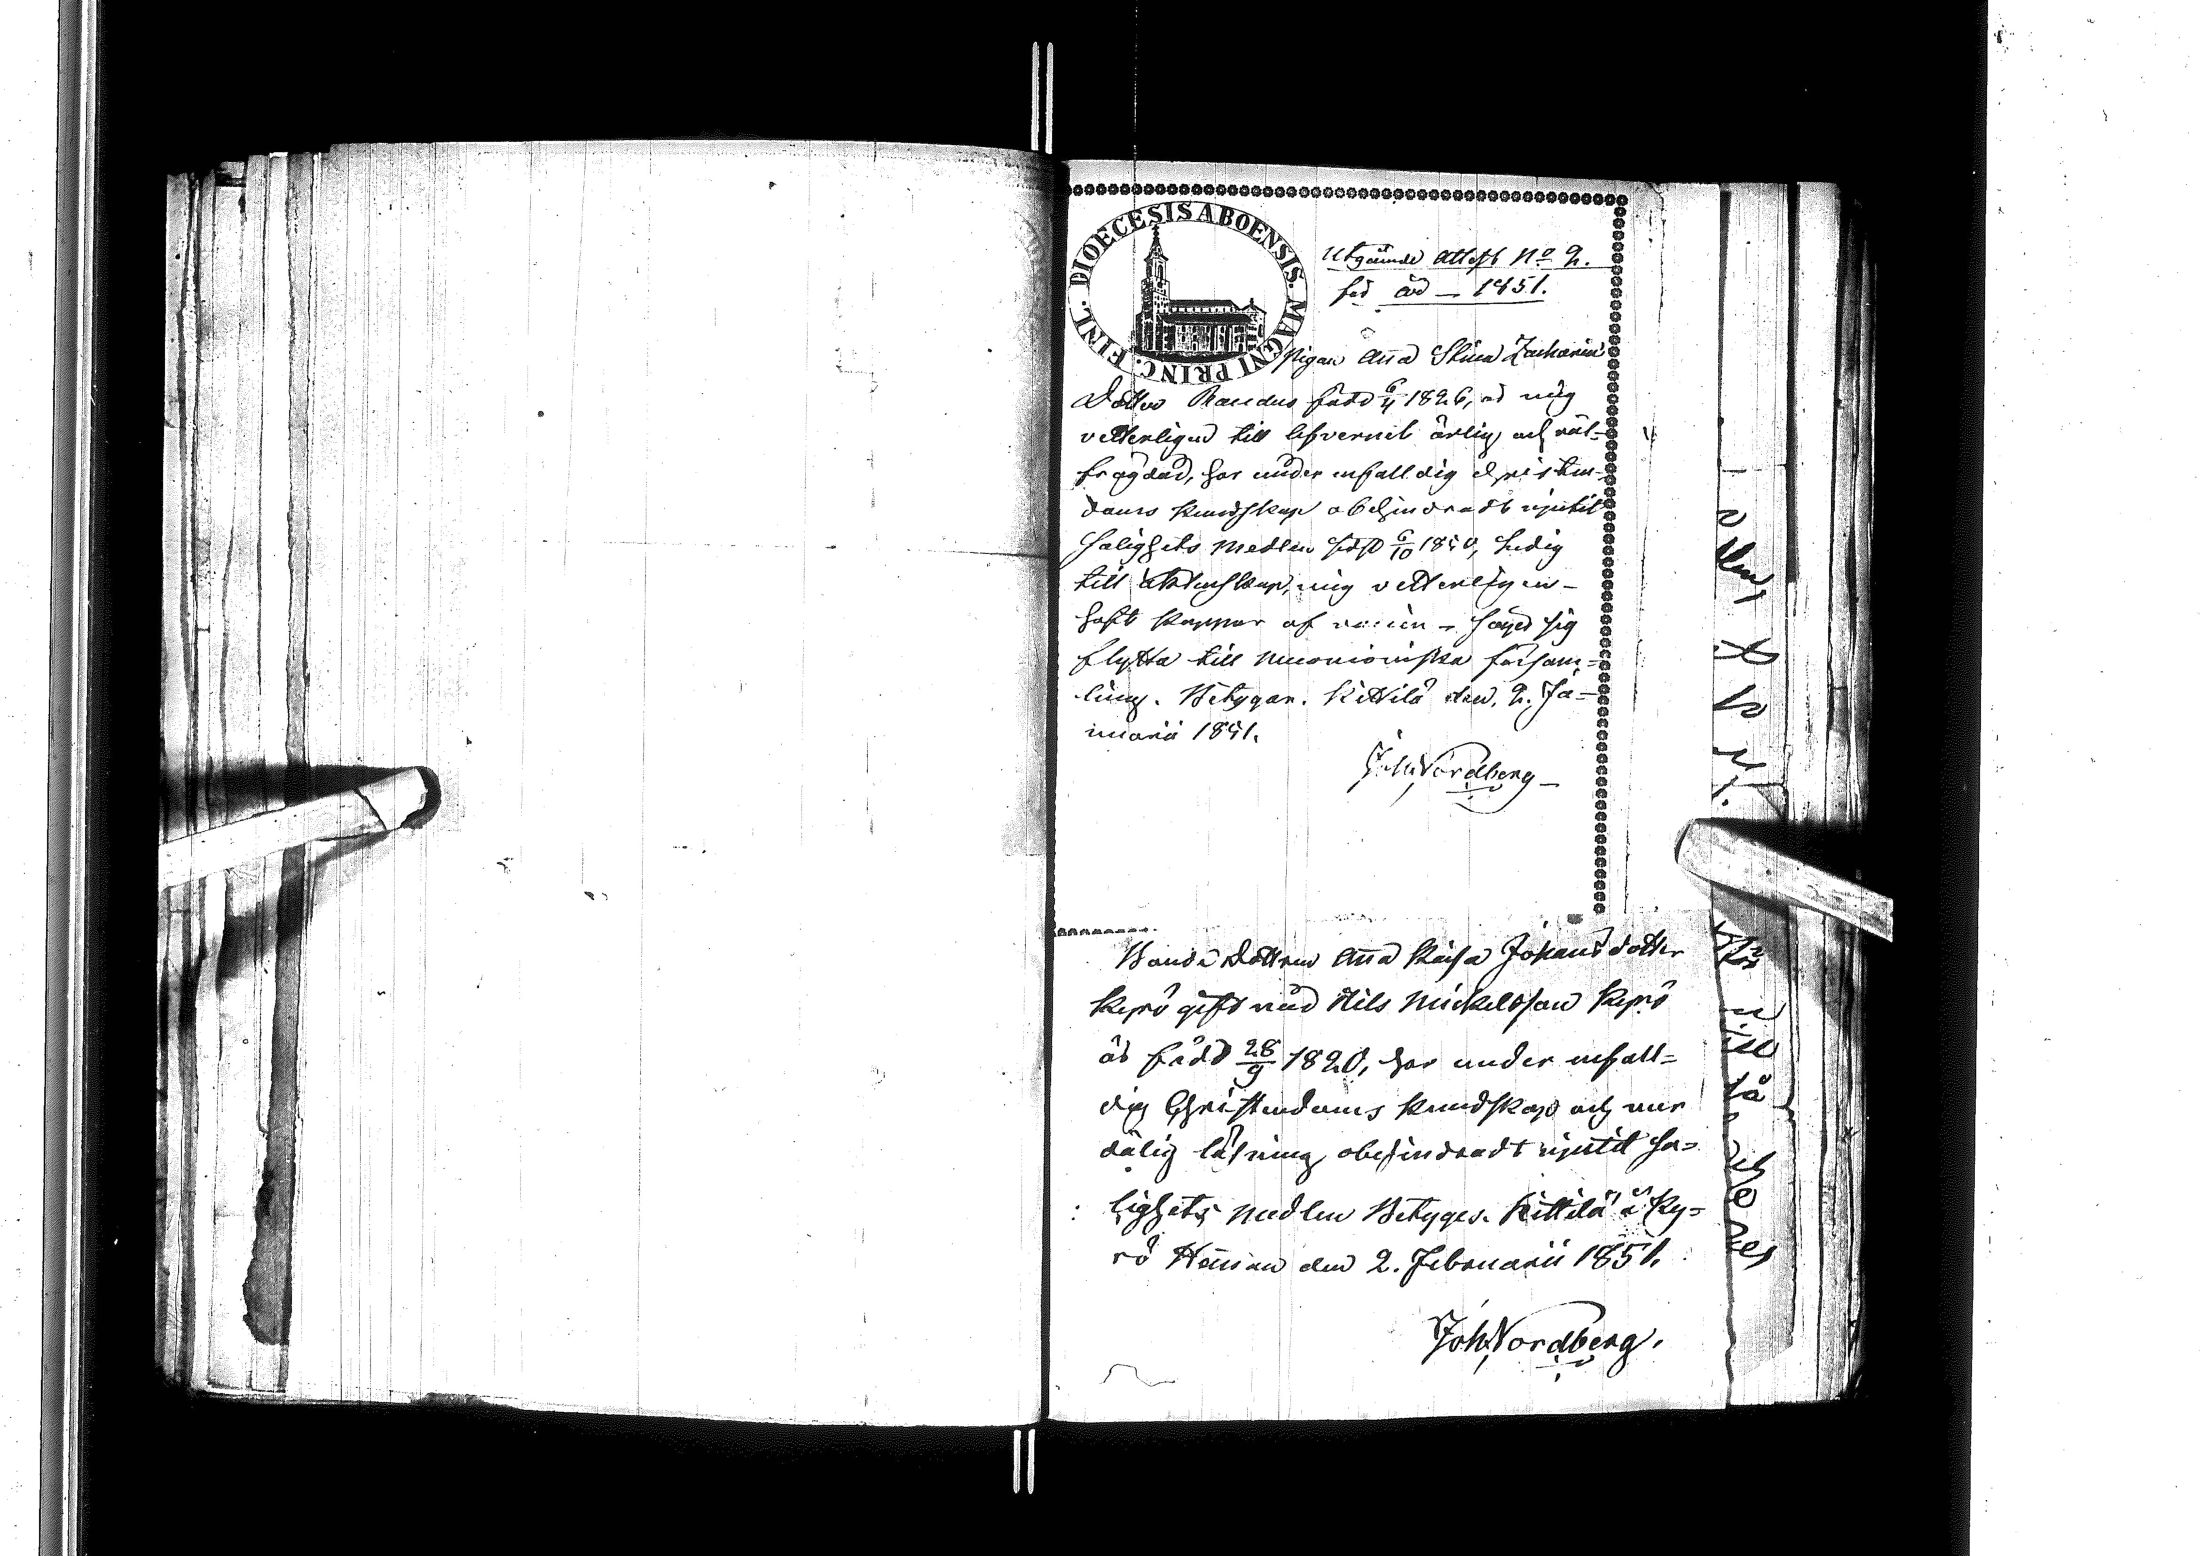 DIOECESIS ABOENSIS. MAGNI PRINC. FINL.
Utgående attest No 2.
för år — 1851.
Pigan Anna Stina Zacharia
Dotter Randus född 6/4 1826, är mig
vetterligen till lefvernet ärlig och väl-
frägdad, har under enfalldig christen-
doms kundskap obehindradt njutit
salighets medlen sidst 6/10 1850, ledig
till äktenskap, mig vetterligen
haft koppor af — säger sig
flytta till Muonioniska försam-
ling. Betygar. Kittilä den 2. Ja-
nuarii 1851.
Joh. Nordberg
Bonde Dottren Anna Kaisa Johans dotter
Kyrö gift med Nils Mickelsson Kyrö
är född 28/9 1820, har under enfall-
dig Christendoms kundskap och
dålig läsning obehindradt njutit sa-
lighets medlen Betyges. Kittilä i Ky-
rö Hemman den 2. Februarii 1851.
Joh. Nordberg.